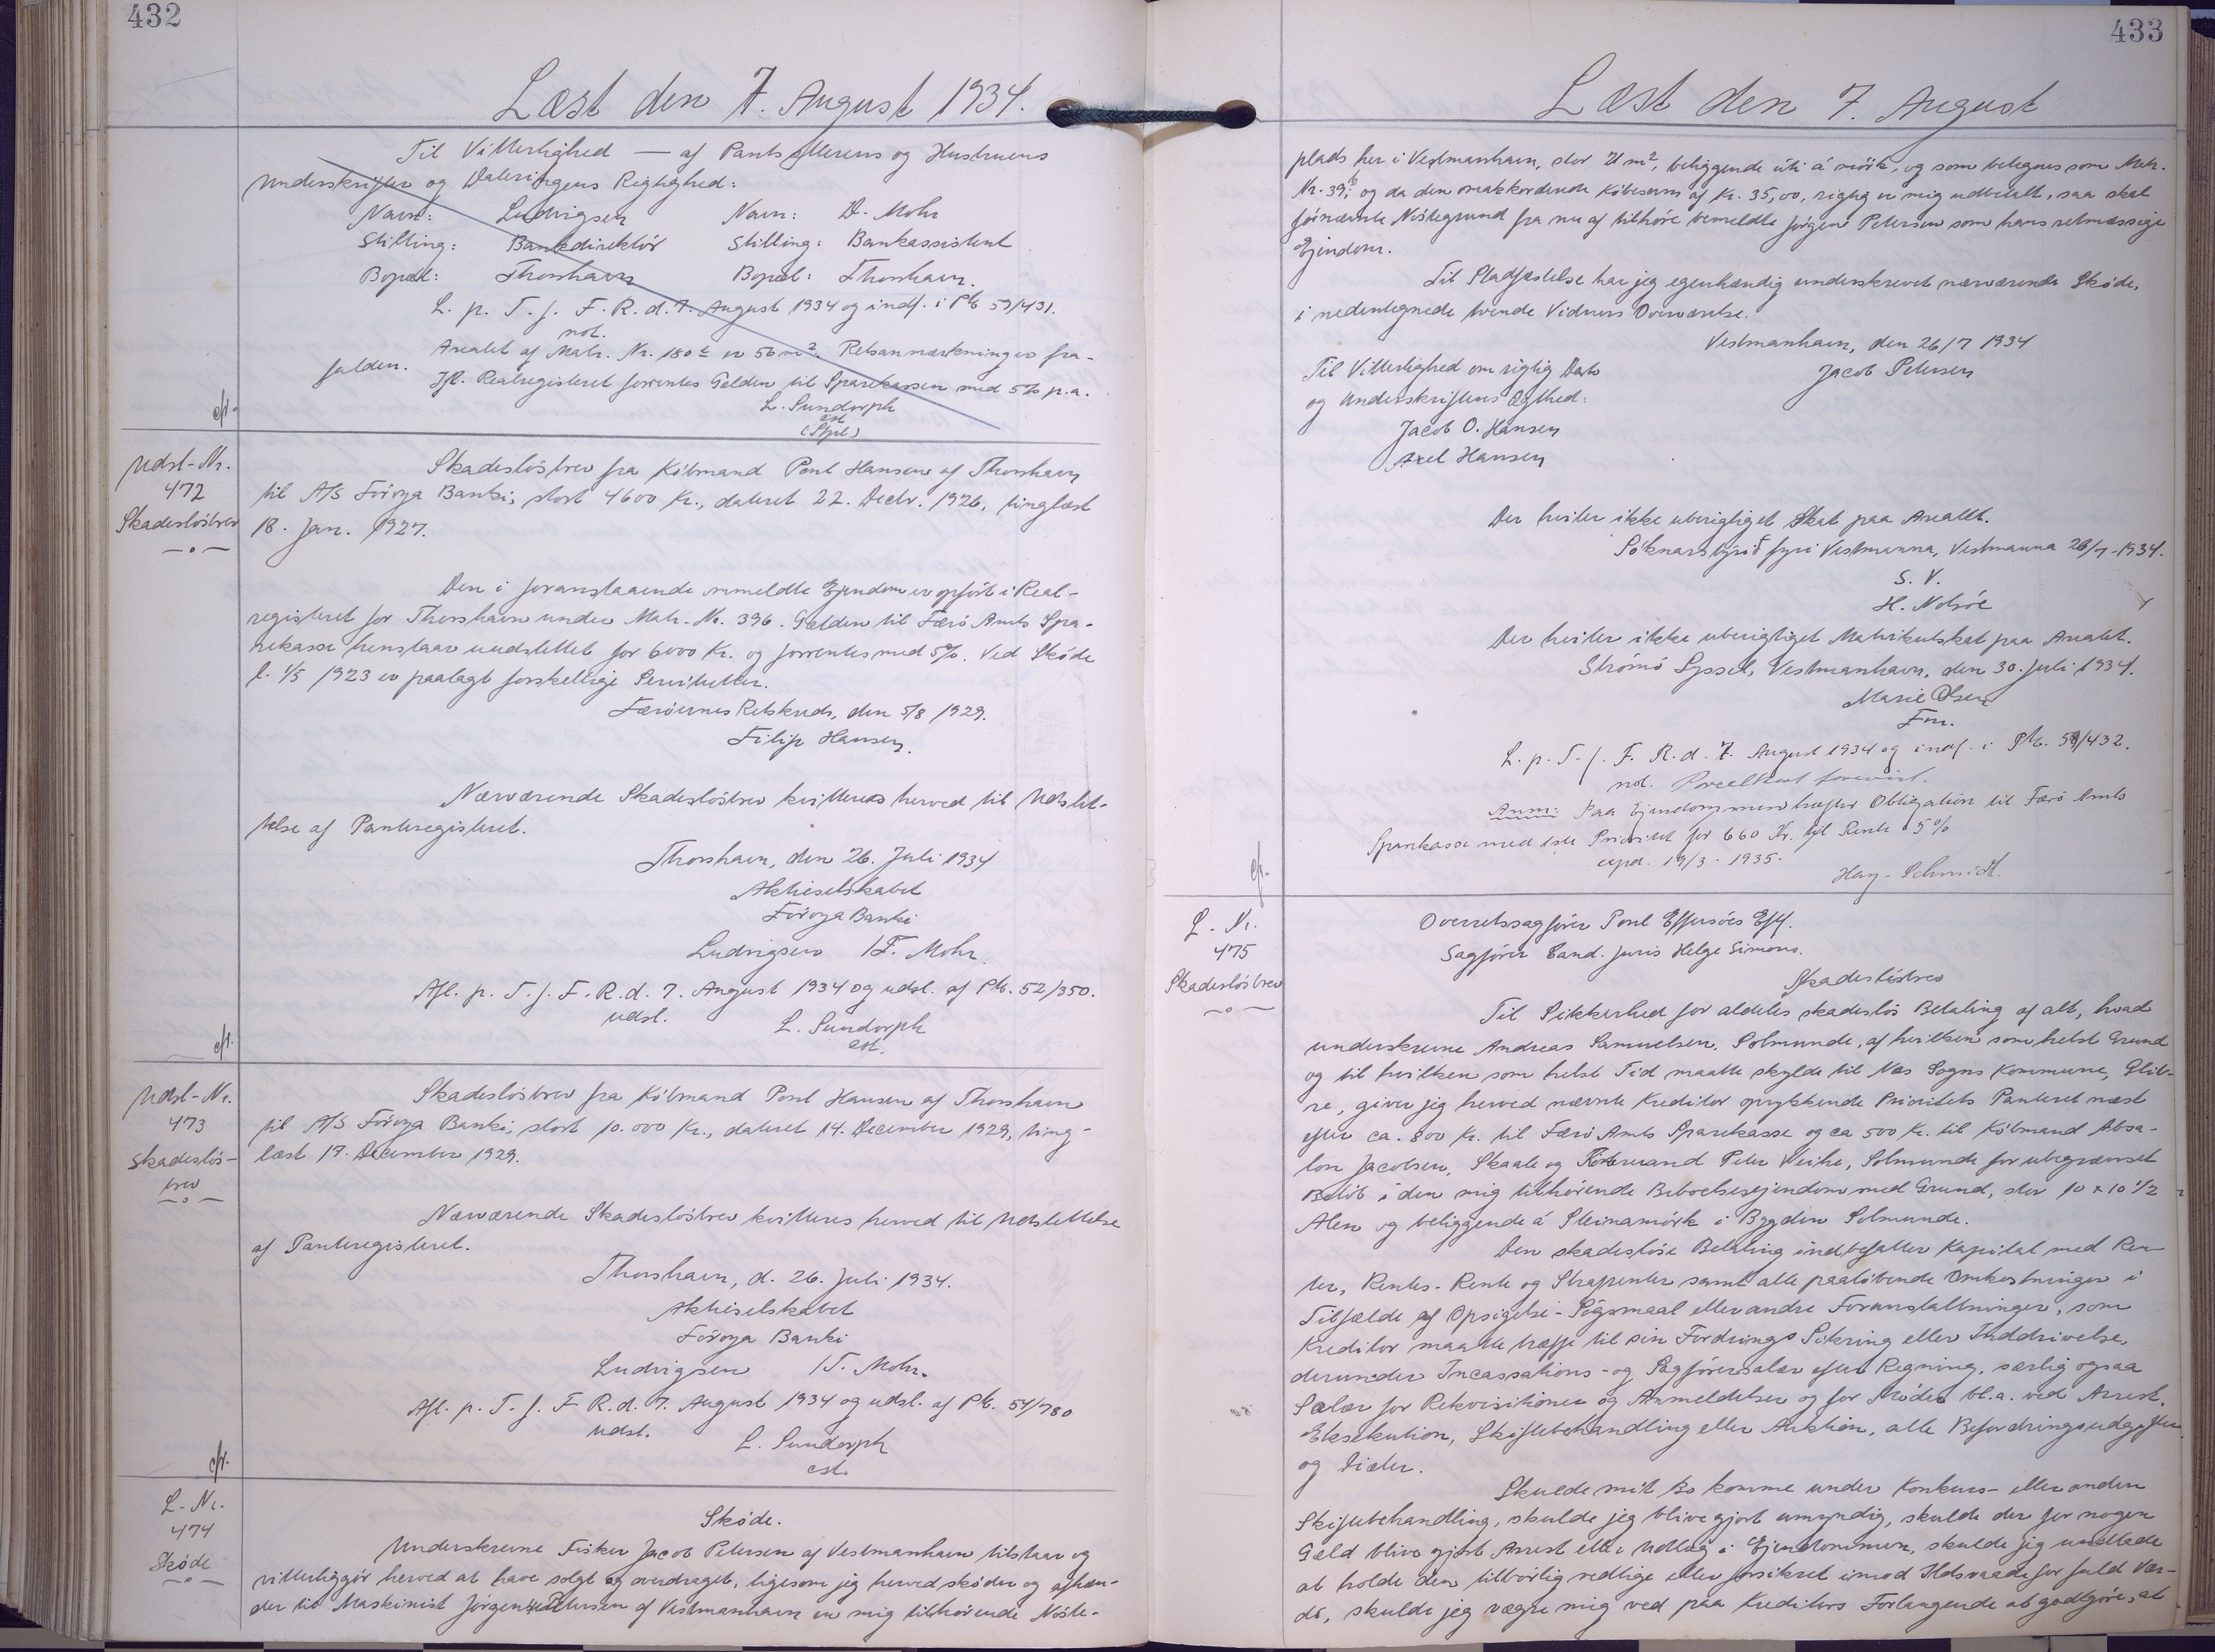 432
Læst den 7. August 1934.
Til Vitterlighed — af Pantsætterens og Hustruens
Underskrifter og Dateringens Rigtighed:
Navn: Ludvigsen Navn: D. Mohr
Stilling: Bankdirektör Stilling: Bankassistent
Bopæl: Thorshavn Bopæl: Thorshavn.
L. p. T. f. F. R. d. 7. August 1934 og indf. i Ptb 59/431.
not.
Arealet af Matr. Nr. 180 er 56 m². Retsanmærkningen fra-
falden.
Jfl. Realregisteret forrentes Gælden til Sparekassen med 5% p.a.
L. Sundorph
cst.
cfr.
Udsl-Nr.
472
Skadeslösbrev
Skadeslösbrev fra Köbmand Poul Hansen af Thorshavn
til A/S Föroya Banki, stort 4600 Kr., dateret 22. Decbr. 1926, tinglæst
18. Jan. 1927.
Den i foranstaaende ommeldte Ejendom er opfört i Real-
registeret for Thorshavn under Matr. Nr. 396. Gælden til Færö Amts Spa-
rekasse henstaar uudslettet for 6000 Kr. og forrentes med 5%. Ved Sköde
l. 1/5 1923 er paalagt forskellige Servitutter.
Færöernes Retskreds, den 5/8 1929.
Filip Hansen.
Nærværende Skadeslösbrev kvitteres herved til Udslet-
telse af Panteregisteret.
Thorshavn, den 26. Juli 1934
Aktieselskabet
Föroya Banki
Ludvigsen /F. Mohr.
Afl. p. T. f. F. R. d. 7. August 1934 og udsl. af Ptb. 52/350.
udsl.
L. Sundorph
cst.
cfr.
Udsl-Nr.
473
Skadeslös-
brev
Skadeslösbrev fra Köbmand Poul Hansen af Thorshavn
til A/S Föroya Banki, stort 10.000 Kr., dateret 14. December 1929, ting-
læst 17. December 1929.
Nærværende Skadeslösbrev kvitteres herved til Udslettelse
af Panteregisteret.
Thorshavn, d. 26. Juli 1934.
Aktieselskabet
Föroya Banki
Ludvigsen /F. Mohr.
Afl. p. T. f. F. R. d. 7. August 1934 og udsl. af Ptb. 54/780
udsl.
L. Sundorph
cst.
cfr.
L-Nr.
474
Sköde
Sköde.
Underskrevne Fisker Jacob Petersen af Vestmanhavn tilstaar og
vitterliggör herved at have solgt og overdraget, ligesom jeg herved sköder og afhæn-
der til Maskinist Jörgen Petersen af Vestmanhavn en mig tilhörende Nöste-
433
Læst den 7. August
plads her i Vestmanhavn, stor 21 m², beliggende úti á mörk, og som betegnes som Matr.
Nr. 39, og da den omakkorderede Köbesum af Kr. 35,00, rigtig er mig udbetalt, saa skal
förnævnte Nöstegrund fra nu af tilhöre bemeldte Jörgen Petersen som hans retmæssige
Ejendom.
Til Stadfæstelse har jeg egenhændig underskrevet nærværende Sköde,
i nedentegnede tvende Vidners Overværelse.
Vestmanhavn, den 26/7 1934
Til Vitterlighed om rigtig Dato Jacob Petersen
og Underskriftens Ægthed:
Jacob O. Hansen
Axel Hansen
Der hviler ikke uberigtiget Skat paa Arealet.
Sóknarstýrið fyri Vestmanna, Vestmanna 26/7-1934.
S. V.
H. Nolsöe
Der hviler ikke uberigtiget Matrikulskat paa Arealet.
Strömö Syssel, Vestmanhavn, den 30. Juli 1934.
Marie Olsen
Fm.
L. p. T. f. F. R. d. 7. August 1934 og indf. i Ptb. 59/432.
not. Parcelkort forevist.
Anm: Paa Ejendommen hæfter Obligation til Færö Amts
Sparekasse med 1ste Prioritet for 660 Kr. til Rente 5%
expd. 19/3-1935.
Hay-Schmidt.
cfr.
L-Nr.
475
Skadeslösbrev
Overretssagförer Poul Effersöes Eftf.
Sagförer Cand. juris Helge Simons.
Skadeslösbrev
Til Sikkerhed for aldeles skadeslös Betaling af alt, hvad
underskrevne Andreas Samuelsen, Solmunde, af hvilken som helst Grund
og til hvilken som helst Tid maatte skylde til Næs Sogns Kommune, Glib-
re, giver jeg herved nævnte Kreditor oprykkende Prioritets Panteret næst
efter ca. 800 Kr. til Færö Amts Sparekasse og ca 500 Kr. til Köbmand Absa-
lon Jacobsen, Skaale og Köbmand Peter Weihe, Solmunde for ubegrænset
Belöb i den mig tilhörende Beboelsesejendom med Grund, stor 10 x 10 1/2
Alen og beliggende á Steinamörk i Bygden Solmunde.
Den skadeslöse Betaling indbefatter Kapital med Ren-
ter, Rentes-Rente og Strafrenter samt alle paalöbende Omkostninger i
Tilfælde af Opsigelse-Sögsmaal eller andre Foranstaltninger, som
Kreditor maatte træffe til sin Fordrings Sikring eller Inddrivelse,
derunder Incassations- og Sagförersalær efter Regning, særlig ogsaa
Salær for Rekvisitioner og Anmeldelser og for Möder bl.a. ved Arrest,
Eksekution, Skiftebehandling eller Auktion, alle Befordringsudgifter
og Diæter.
Skulde mit Bo komme under Konkurs- eller anden
Skiftebehandling, skulde jeg blive gjort umyndig, skulde der for nogen
Gæld blive gjort Arrest eller Udlæg i Ejendommen, skulde jeg undlade
at holde den tilbörlig vedlige eller forsikret imod Ildsvaade for fuld Vær-
di, skulde jeg vægre mig ved paa Kreditors Forlangende at godtgöre, at